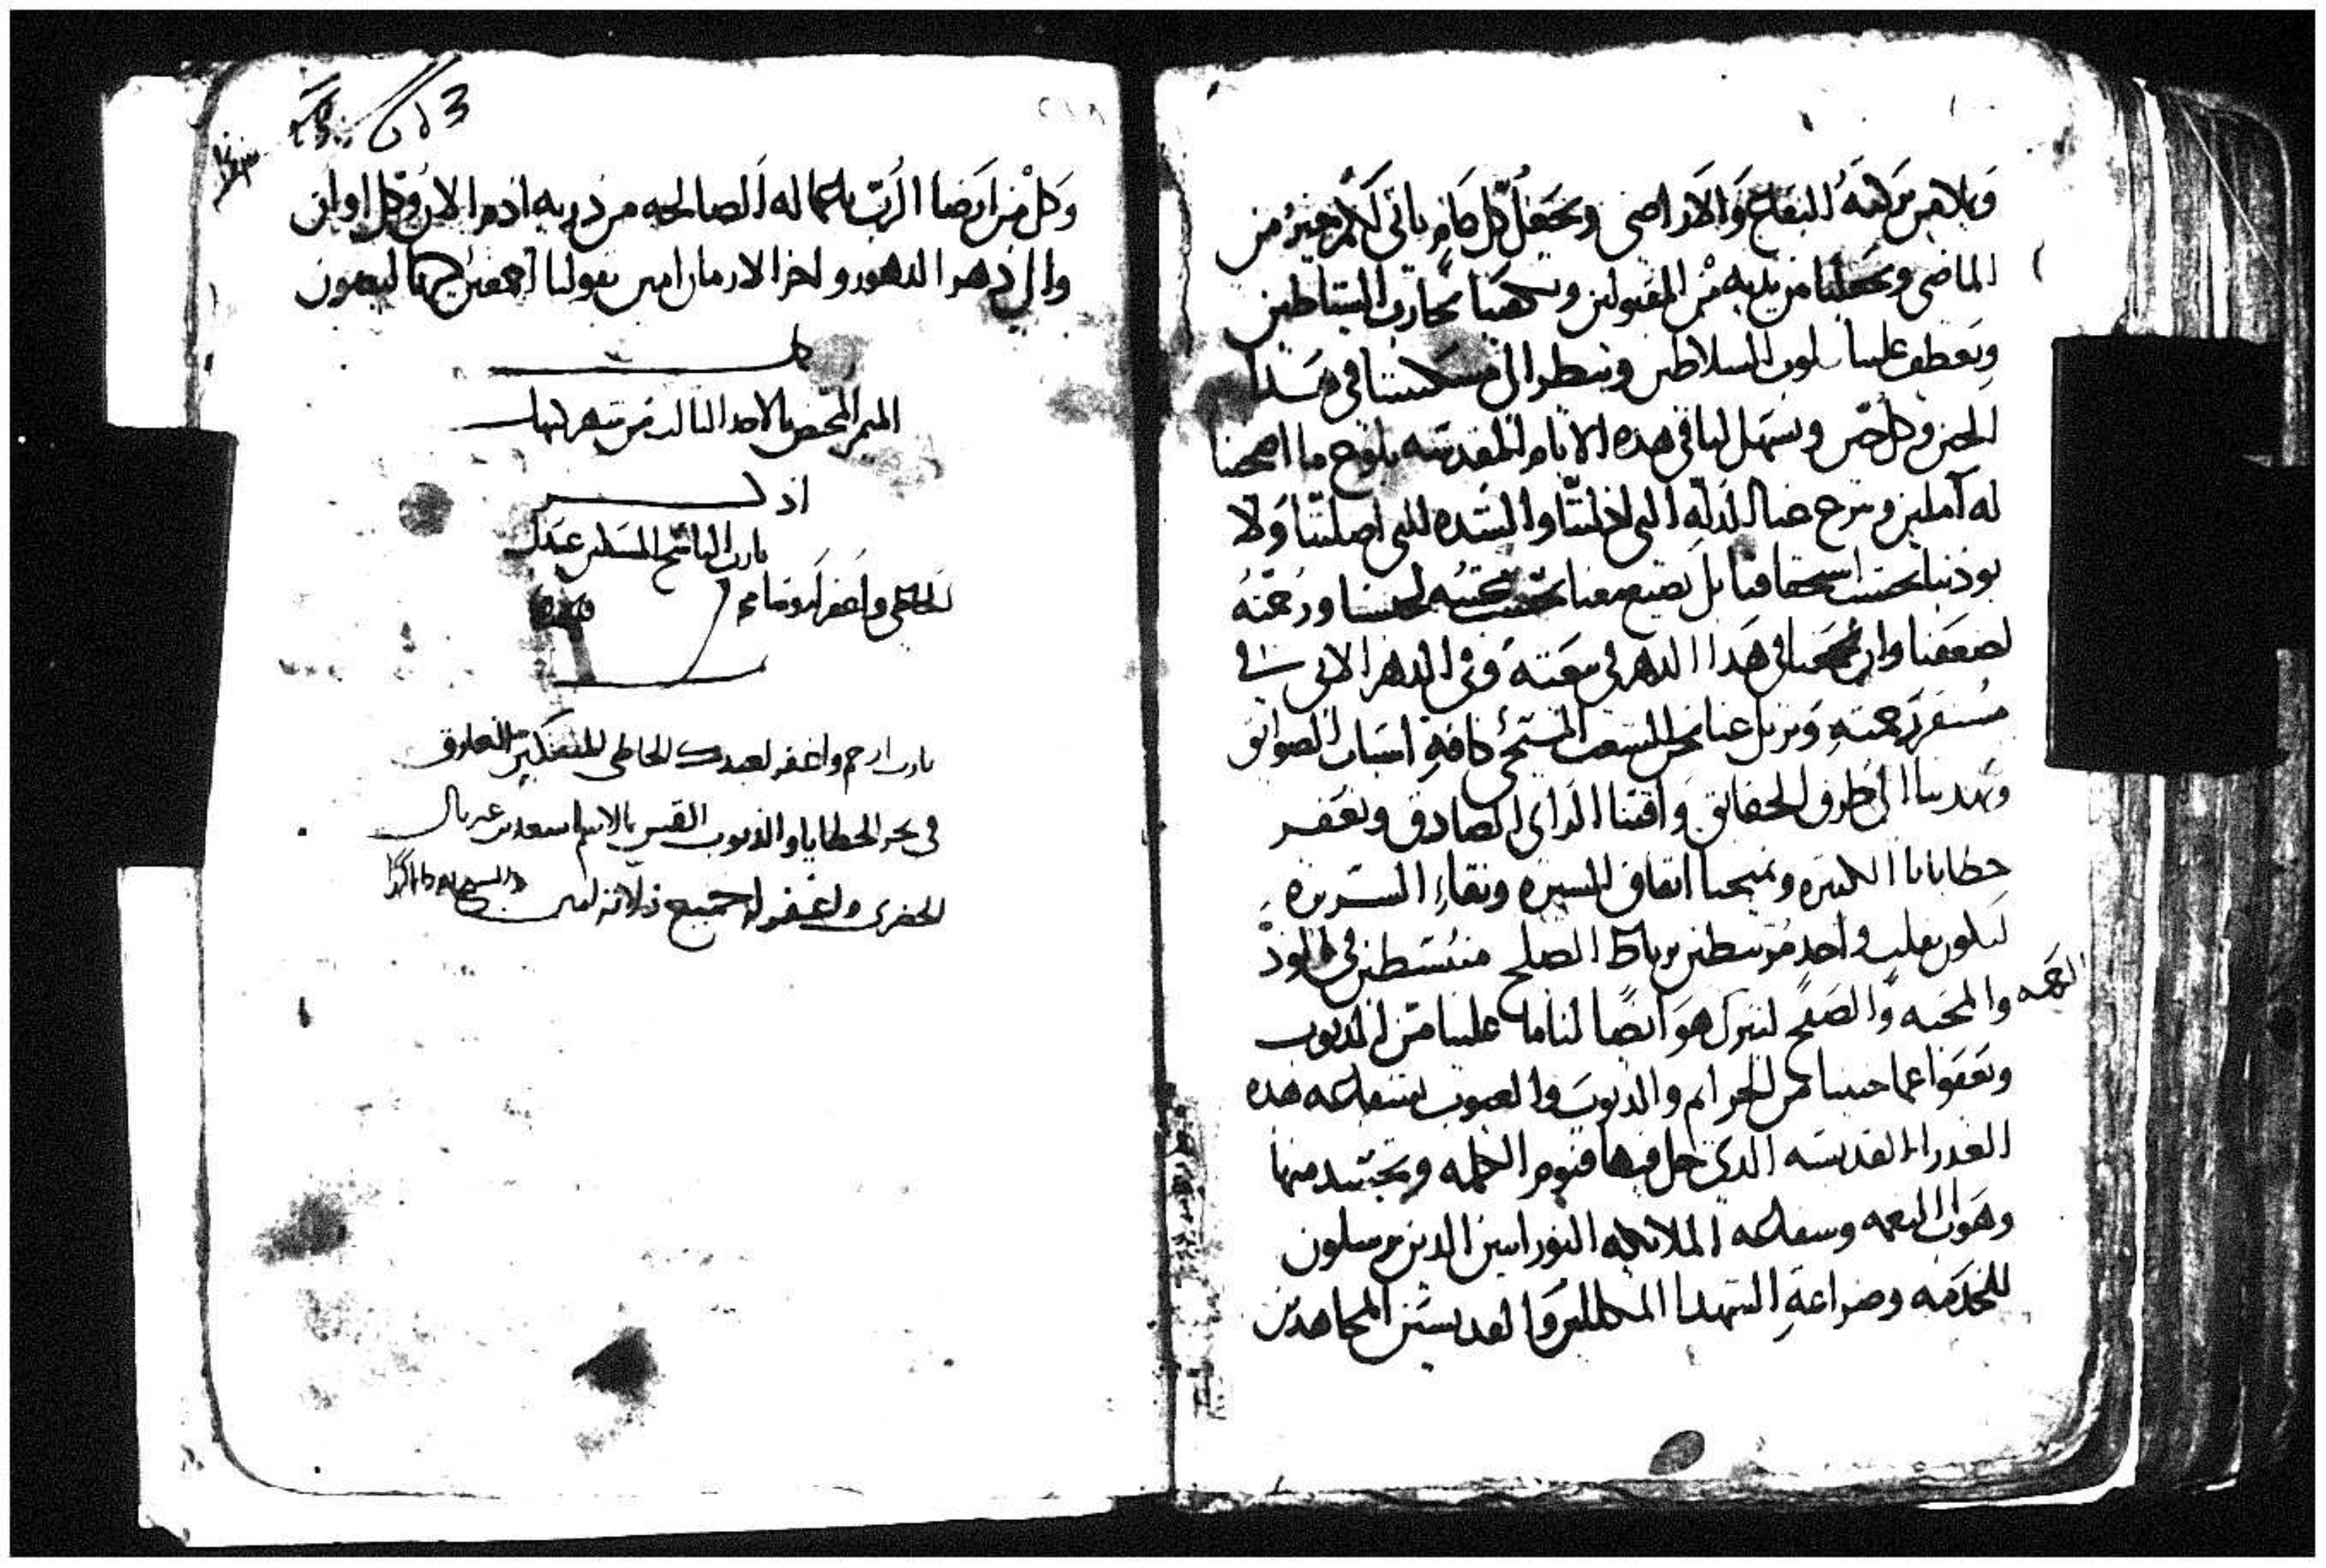 وبلاهن بركته البقاع والاراضي وتجعل كل عام ياتي لكم خير من
الماضي وتجعلنا من يديه من المقبولين ويكفينا تجارب الشياطين
ويعطف علينا قلوب السلاطين وينظر الى مسكنتنا في هذا
الحين وكل حين ويسهل لنا في هذه الايام المقدسه بلوغ ما اصبحنا
له آملين ويزح عنا الذله التي اذلتنا والشده التي اصلتنا ولا
يوذينا بحسب استحقاقنا بل يصنع معنا بحسب محبته لجنسنا ورحمته
لضعفنا وان يجمعنا في هذا الدهر في بيعته وفي الدهر الاتي في
مستقر رحمته ويزيل عنا نحن الشعب المسيحي كافة اسباب العوايق
ويهدينا الى طرق الحقايق واقتنا الراي الصادق ويغفر
خطايانا الكثيره ويمنحنا اتفاق السيره ونقاء السريره
لنكون بقلب واحد مرتبطين برباط الصلح منبسطين في الود
والمحبه والصفح ليترك هو ايضا لنا ما علينا من الذنوب الرحمه
ويعفوا عما جنينا من الجرايم والذنوب والعيوب بشفاعه هذه
العدرا القديسه الذي حل فيها قنوم الكلمه وتجسد منها
وهو اله النعمه وشفاعه الملايكه النورانيين الذين يرسلون
للخدمه وضراعة الشهدا المكللين والقديسين المجاهدين
وكل من ارضا الرب باعماله الصالحه من ذريه ادم الان وكل اوان
والى دهر الدهور واخر الازمان امين يقولنا اجمعين
كمل
الميمر المختص بالاحد الثالث من شهر كيهك
اذكر
يارب الناسخ المسكين عبدك
الخاطي واغفر له
يارب ارحم واغفر لعبدك الخاطي المسكين الغارق
في بحر الخطايا والذنوب القس بالاسم سعد بن غبريال
الخضري واغفر له جميع زلاته امين والسبح لله دايما ابدا